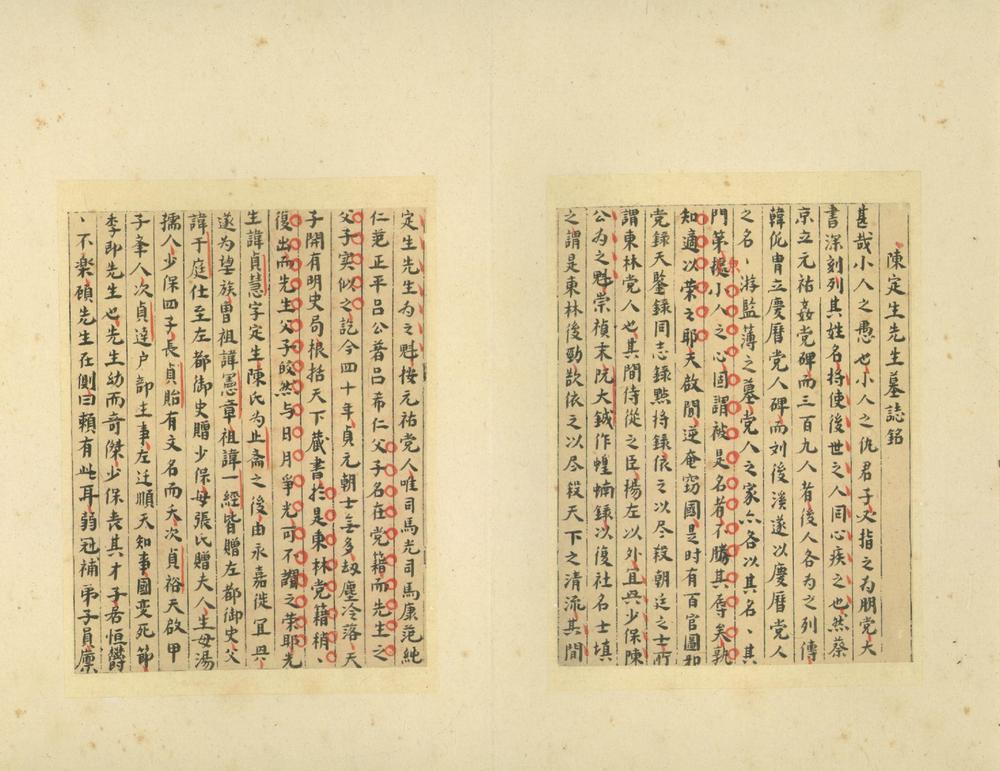 陳定生先生墓誌銘
甚哉小人之愚也小人之仇君子又指之為朋党大
書深刻列其姓名将使後世之人同心疾之也然蔡
京立元祐姦党碑而三百九人者後人各為之列傳
韓侂胄立慶曆党人碑而刘後溪遂以慶曆党人
之名、游監薄之墓党人之家亦各以其名、其
門第揔小人之心固謂被是名者不勝其辱矣孰
知適以荣之耶天啟間逆奄窃國是时有百官圖邪
党録天鑒録同志録點将録依之以尽殺朝廷之士所
謂東林党人也其間侍從之臣楊左以外宜兴少保陳
公為之魁崇禎末阮大鋮作蝗蝻録以復社名士填
之謂是東林後勁欲依之以尽殺天下之清流其間
定生先生為之魁按元祐党人唯司馬光司馬康范純
仁范正平吕公着吕希仁父子名在党籍而先生之
父子实似之訖今四十年貞元朝士無多刼塵冷落天
子開有明史局根括天下蔵書於是東林党籍稍、
復出而先生父子皎然与日月爭光可不謂之荣耶先
生諱貞慧字定生陳氏為止斋之後由永嘉徙宜兴
遂為望族曽祖諱憲章祖諱一經皆贈左都御史父
諱于庭仕至左都御史贈少保母張氏贈夫人生母湯
孺人少保四子長貞貽有文名而夭次貞裕天啟甲
子举人次貞達户部主事左迁順天知事國变死節
季即先生也先生幼而奇傑少保丧其才子居恒鬱
、不楽顧先生在側曰頼有此耳弱冠補弟子員廪